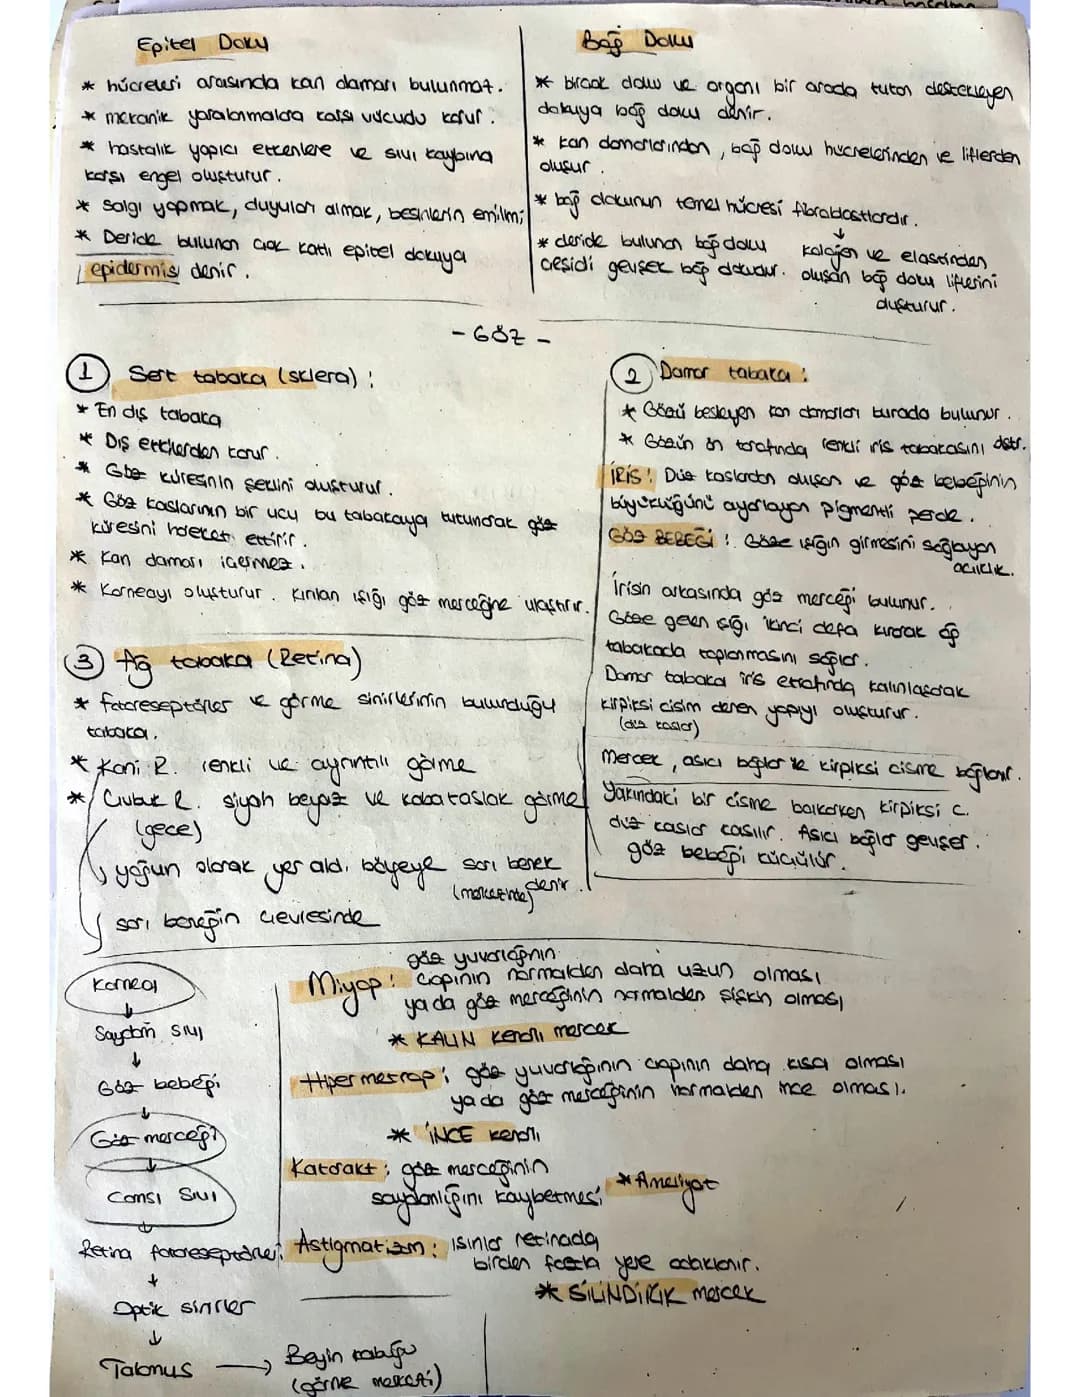 Epitel Doku
* hücreleri arasında kan damarı bulunmaz.
* mekanik yaralanmalara karşı vücudu korur.
* hastalık yapıcı etkenlere ve sıvı kaybına
karşı engel oluşturur.
* Salgı yapmak, duyuları almak, besinlerin emilimi
* Deride bulunan çok katlı epitel dokuya
epidermis denir.
Bağ Doku
* birçok doku ve organı bir arada tutan destekleyen
dokuya bağ doku denir.
* kan damarlarından, bağ doku hücrelerinden ve liflerden
oluşur.
* bağ dokunun temel hücresi fibroblastlardır.
↓
kolajen ve elastinden
oluşan bağ doku liflerini
oluşturur.
* deride bulunan bağ doku
çeşidi gevşek bağ dokudur.
- GÖZ -
1 Sert tabaka (sklera) :
* En dış tabaka
* Dış etkilerden korur.
* Göz küresinin şeklini oluşturur.
* Göz kaslarının bir ucu bu tabakaya tutunarak göz
küresini hareket ettirir.
* Kan damarı içermez.
* Korneayı oluşturur. Kırılan ışığı göz merceğine ulaştırır.
2 Damar tabaka :
* Gözü besleyen kan damarları burada bulunur.
* Gözün ön tarafında renkli iris tabakasını olştr.
İRİS : Düz kaslardan oluşan ve göz bebeğinin
büyüklüğünü ayarlayan pigmentli perde.
GÖZ BEBEĞİ : Göze ışığın girmesini sağlayan
açıklık.
İrisin arkasında göz merceği bulunur.
Göze gelen ışığı ikinci defa kırarak ağ
tabakada toplanmasını sağlar.
Damar tabaka iris etrafında kalınlaşarak
kirpiksi cisim denen yapıyı oluşturur.
(düz kaslar)
Mercek, asıcı bağlar ile kirpiksi cisme bağlanır.
Yakındaki bir cisme bakarken kirpiksi c.
düz kaslar kasılır. Asıcı bağlar gevşer.
göz bebeği küçülür.
3 Ağ tabaka (Retina)
* fotoreseptörler ve görme sinirlerinin bulunduğu
tabaka.
* Koni R. renkli ve ayrıntılı görme
* Çubuk R. siyah beyaz ve kabataslak görme
(gece)
yoğun olarak yer aldı. bölgeye sarı benek
(merkezinde) denir.
sarı beneğin çevresinde
Kornea
↓
Saydam sıvı
↓
Göz bebeği
↓
Göz merceği
↓
Camsı Sıvı
↓
Retina fotoreseptörleri
↓
Optik sinirler
↓
Talamus → Beyin kabuğu
(görme merkezi)
göz yuvarlağının
Miyop : çapının normalden daha uzun olması
ya da göz merceğinin normalden şişkin olması
* KALIN kenarlı mercek
Hipermetrop : göz yuvarlağının çapının daha kısa olması
ya da göz merceğinin normalden ince olması.
* İNCE kenarlı
Katarakt : göz merceğinin
saydamlığını kaybetmesi
* Ameliyat
Astigmatizm : ışınlar retinada
birden fazla yere odaklanır.
* SİLİNDİRİK mercek